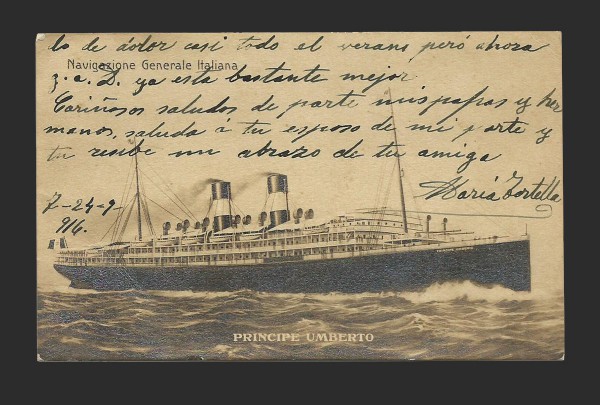 lo de dolor casi todo el verano pero ahora
Navigazione Generale Italiana
g.a.D. ya esta bastante mejor
Cariñosos saludos de parte mis papas y her
manos, saluda á tu esposo de mi parte y
tu recibe un abrazo de tu amiga
Maria Tortella
7-24-9-
916.
PRINCIPE UMBERTO